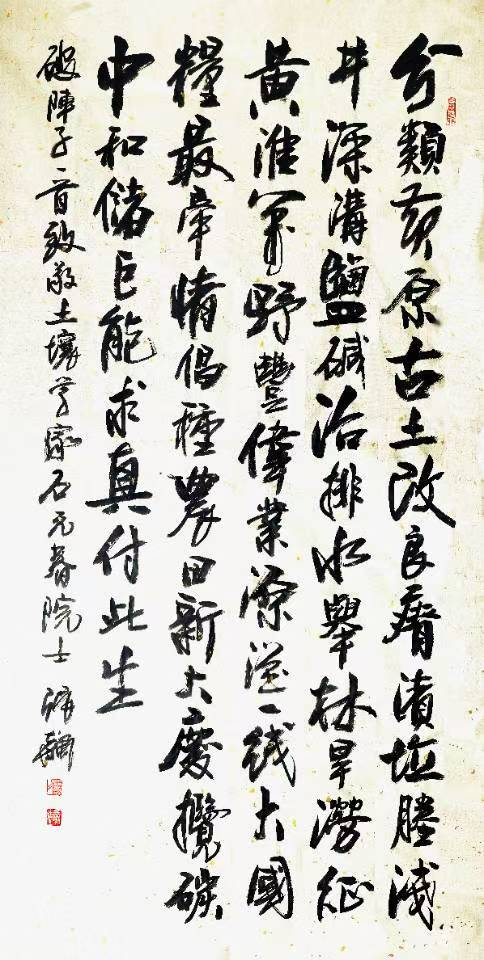 分類黃原古土改良瘠漬坵塍淺
井深溝鹽碱治排水舉林旱澇征
黃淮萬野豐偉業源一线大國
糧最牽情倡種農田新大慶攬碳
中和儲巨能求真付此生
破陣子一首致敬土壤學家石元春院士